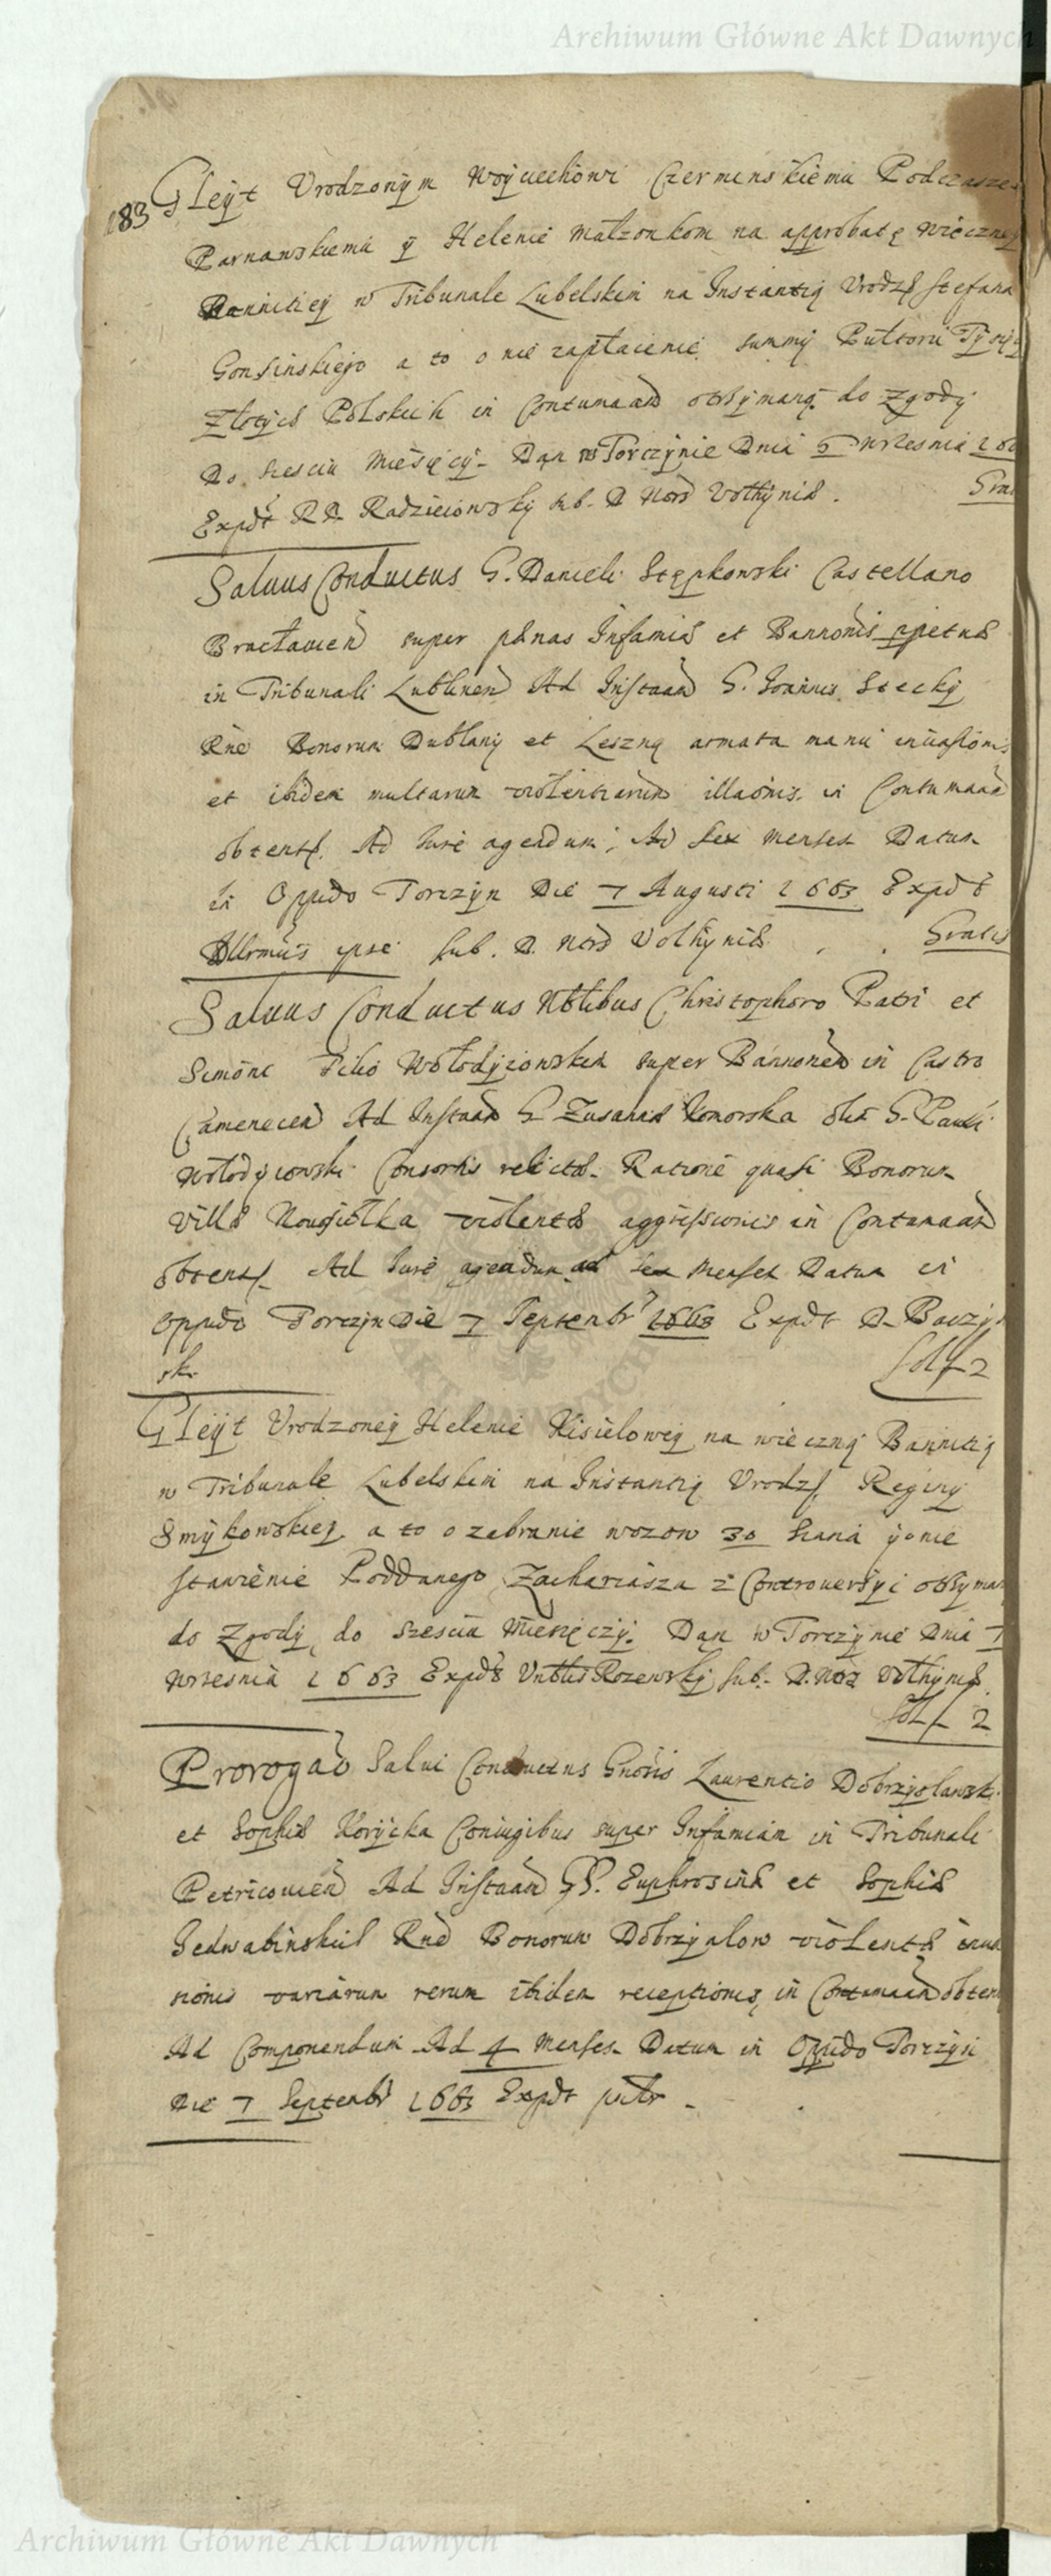 Archiwum Główne Akt Dawnych
183 Gleÿt Vrodzonÿm Woÿciechowi Czerminskiemu Podczasze
Parnawskiemu ÿ Helenie Małzonkom na approbatę wieczneÿ
Bannitieÿ w Tribunale Lubelskim na Instantią Vrodz Stefana
Gonsinskiego a to o nie zapłacenie summÿ Pułtoru Tÿsią
Złotÿch Polskich in Contumaciam otrzÿmaną do Zgodÿ
Do szesciu Miesięcÿ. Dan w Torczÿnie Dnia 5 Wrzesnia 166
Expdt RD Radzieiowskÿ sub. D Nota Volhÿniæ. Grat
Saluus Conductus G. Danieli Stępkowski Castellano
Bracłauien super pænas Infamiæ et Bannonis ppetuæ
in Tribunali Lublinen Ad Instaan G. Joannis Steckÿ
Rne Bonorum Dublanÿ et Leszną armata manu inuasionis
et ibidem multarum violentiarum illaonis in Contumaan
obtent. Ad Jure agendum; Ad sex Menses Datum
in Oppido Torczÿn Die 7 Augusti 1663 Expdt
Illrmus ipse sub. D. Nota Volhÿniæ. Gratis
Saluus Conductus Nblibus Christophoro Patri et
Simone Filio Wołodÿiowskim super Bannonem in Castro
Camenecen Ad Instaan G Zusannæ Konorska olim G. Pauli
Wołodÿiowski Consortis relictæ. Ratione quasi Bonorum
Villæ Nowosiołka violentæ aggressionis in Contumaan
obtent Ad Jure agendum ad sex Menses Datum in
Oppido Torczÿn Die 7 Septembr 1663 Expdt D. Baczÿn
ski Sol f 2
Gleÿt Vrodzoneÿ Helenie Kisieloweÿ na wieczną Bannitią
w Tribunale Lubelskim na Instantią Vrodz Reginÿ
Smÿkowskieÿ a to o zabranie wozow 30 siana ÿ o nie
stawienie Poddanego Zachariasza z Controuersÿi otrzÿman
do Zgodÿ do szesciu Miesięczÿ. Dan w Torczÿnie Dnia 7
Wrzesnia 1663 Expdt Rozewskÿ sub. D. Nota Volhÿniæ
Sol f 2
Prorogao Salui Conductus Gnosis Laurentio Dobrzÿsławski
et Sophiæ Korÿcka Coniugibus super Infamiam in Tribunali
Petricouien Ad Instaan GG. Euphrosinæ et Sophiæ
Jedwabinskie Rne Bonorum Dobrzÿalow violentæ inua
sionis variarum rerum ibidem receptionis, in Contumaan obten
Ad Componendum Ad 4 Menses Datum in Oppido Torczÿn
Die 7 Septembr 1663 Expdt
Archiwum Główne Akt Dawnych